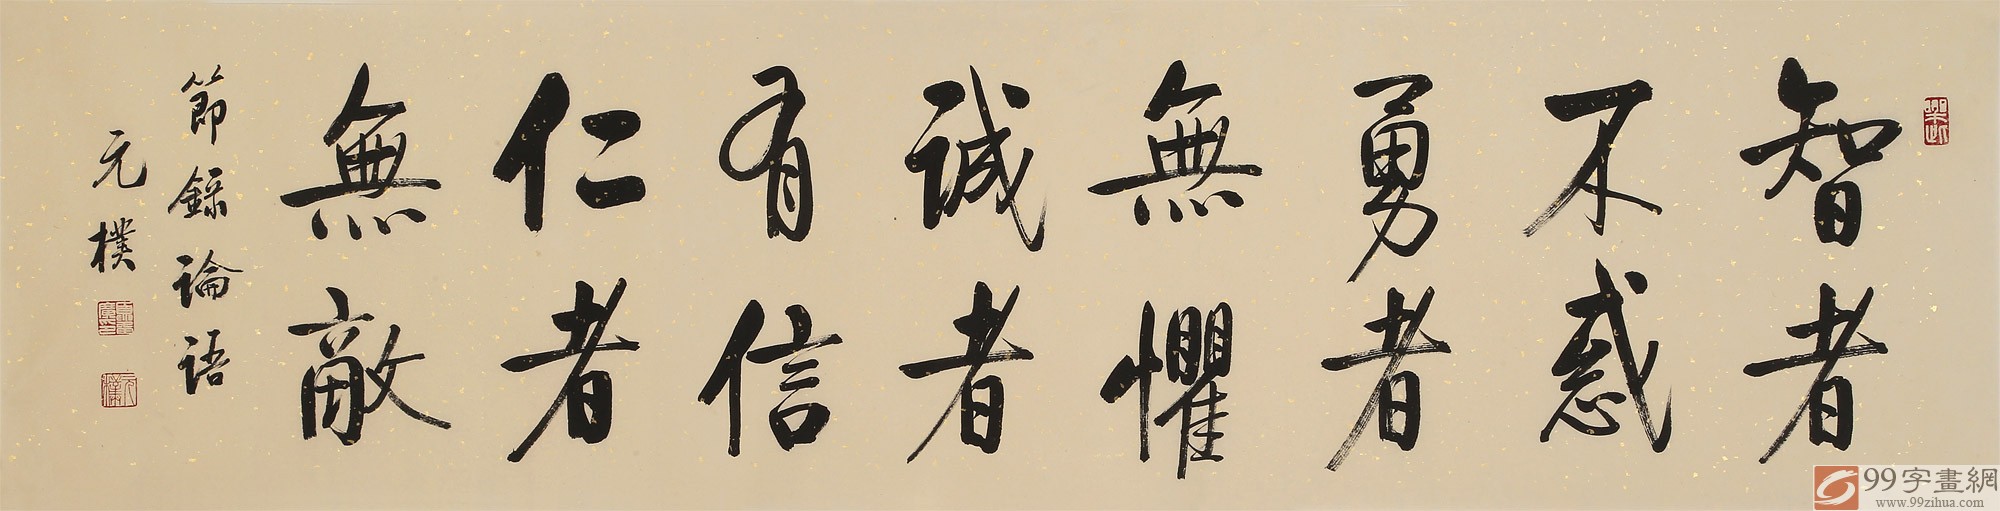 智者
不惑
勇者
無懼
誠者
有信
仁者
無敵
節錄論語
元樸
99字畫網
www.99zihua.com